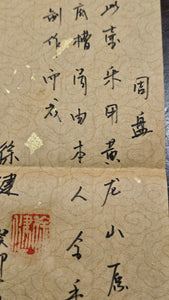 周盘
此壶采用黄龙山原
底槽清由本人全手
制作而成
徐建
癸卯